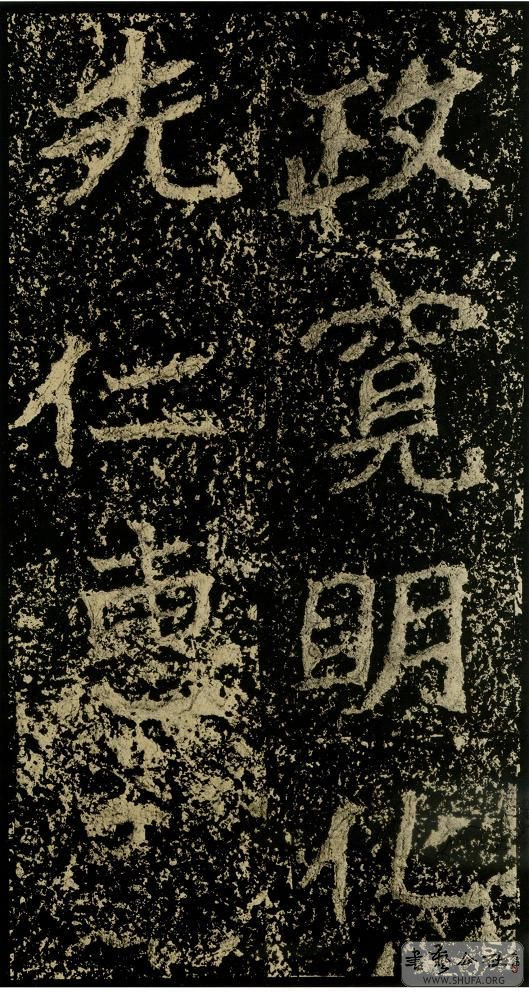 政寬明化
先仁惠
書法公社
WWW.SHUFA.ORG